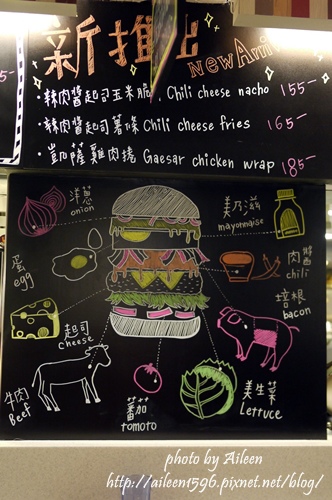 新推出
New Arri
·辣肉醬起司玉米脆片 Chili cheese nacho 155-
·辣肉醬起司薯條 Chili cheese fries 165-
·凱薩雞肉捲 Gaesar chicken wrap 185-
洋蔥
onion
美乃滋
mayonnaise
蛋
egg
肉醬
chili
起司
cheese
培根
bacon
牛肉
Beef
蕃茄
tomoto
美生菜
Lettuce
photo by Aileen
http://aileen1596.pixnet.net/blog/